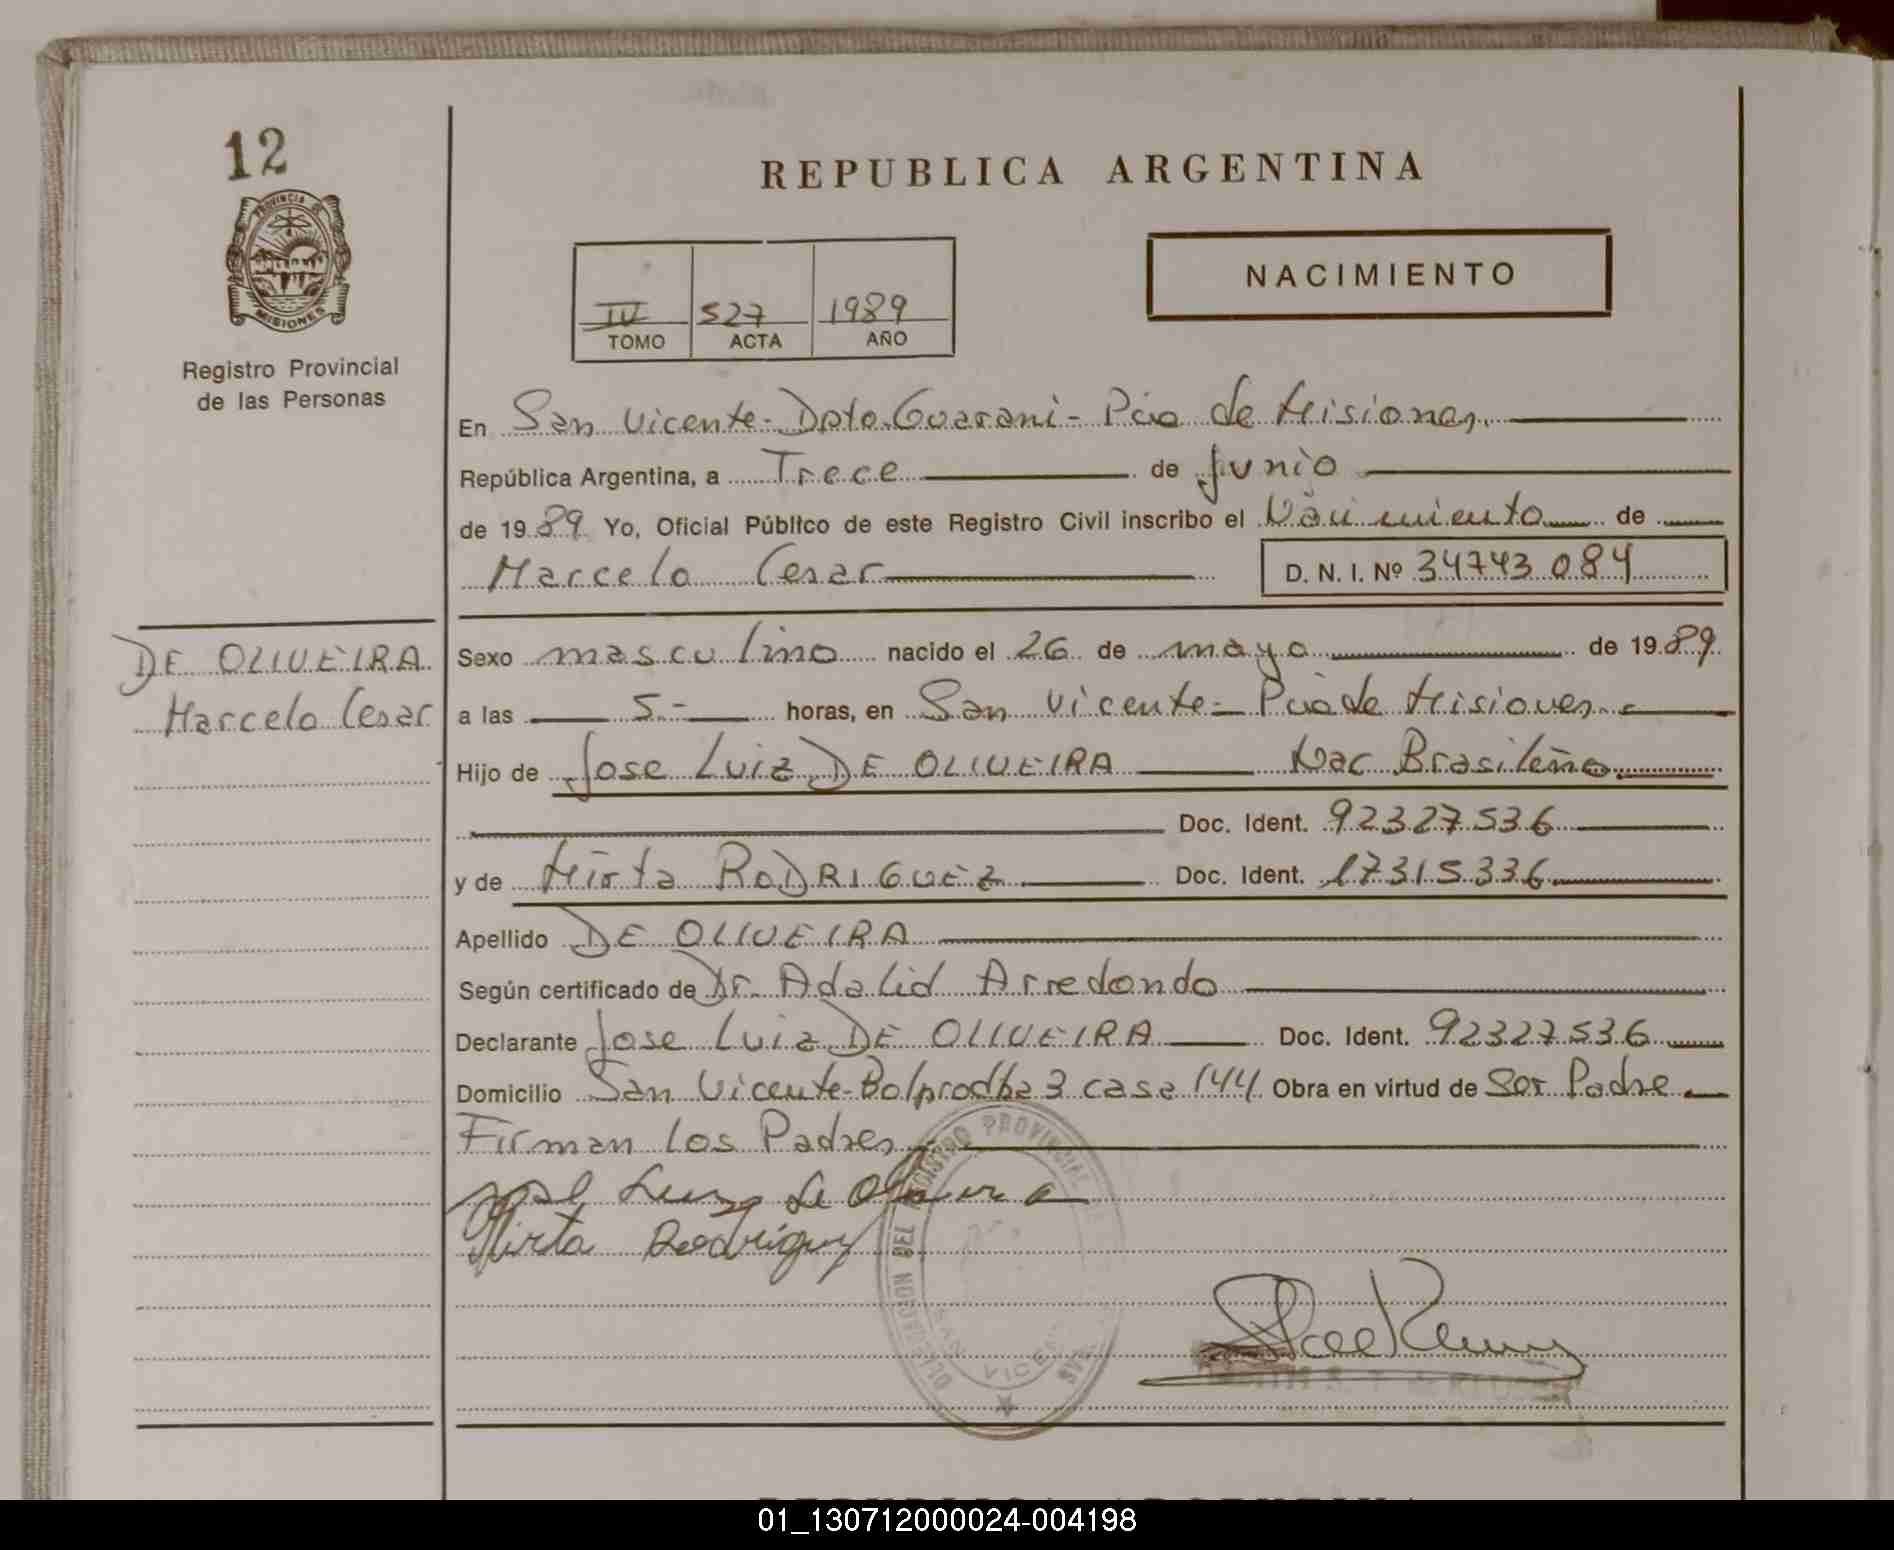 12
PROVINCIA DE
MISIONES
Registro Provincial
de las Personas
REPUBLICA ARGENTINA
NACIMIENTO
IV 527 1989
TOMO ACTA AÑO
En San Vicente - Dpto. Guarani - Pcia de Misiones.
República Argentina, a Trece de Junio
de 1989 Yo, Oficial Público de este Registro Civil inscribo el Nacimiento de
Marcelo Cesar D. N. I. Nº 34743084
DE OLIVEIRA
Marcelo Cesar
Sexo masculino nacido el 26 de mayo de 1989
a las 5.- horas, en San Vicente - Pcia de Misiones.
Hijo de Jose Luiz DE OLIVEIRA Nac Brasileño
Doc. Ident. 92327536
y de Mirta RODRIGUEZ Doc. Ident. 17315336
Apellido DE OLIVEIRA
Según certificado de Dr. Adalid Arredondo
Declarante Jose Luiz DE OLIVEIRA Doc. Ident. 92327536
Domicilio San Vicente - 3 casa 144 Obra en virtud de Ser Padre
Firman Los Padres
Jose Luiz de Oliveira
Mirta Rodriguez
DELEGACION DEL REGISTRO PROVINCIAL DE
SAN VICENTE
01_130712000024-004198